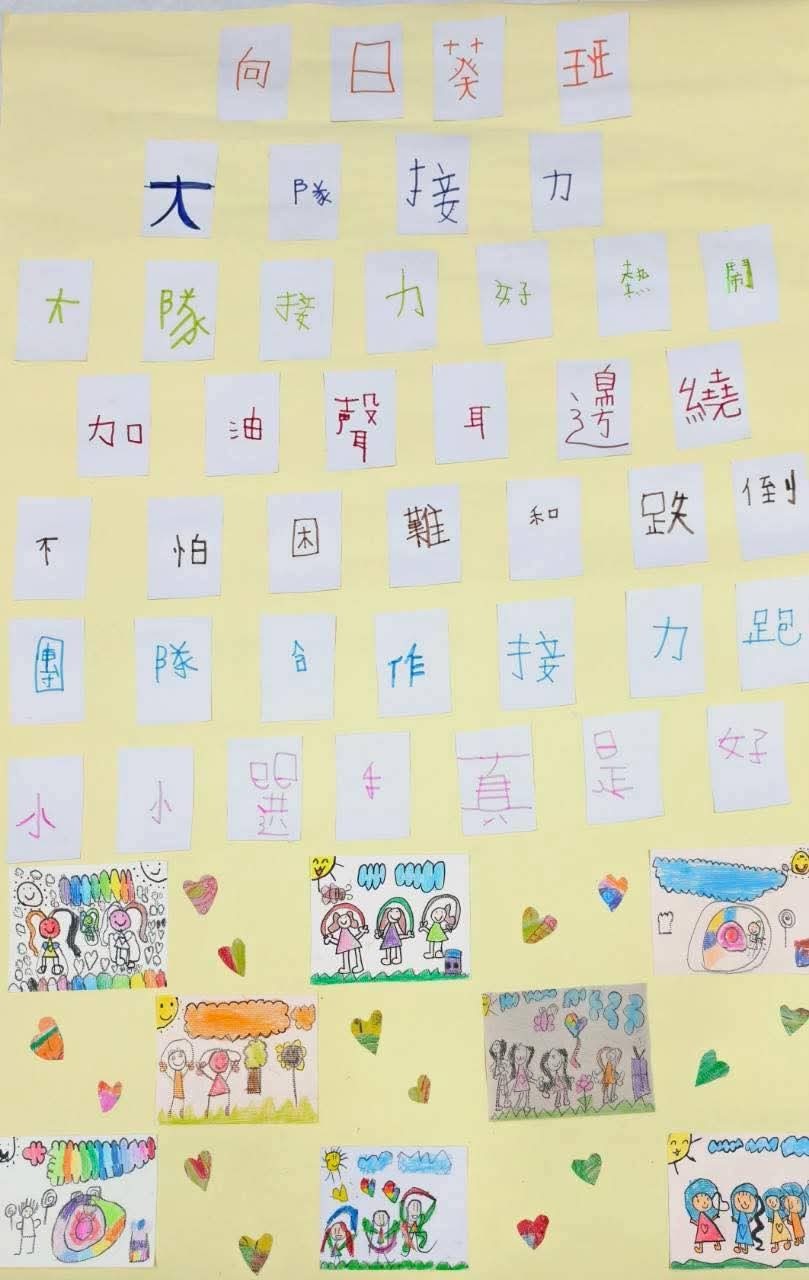 向日葵班
大隊接力
大隊接力好熱鬧
加油聲耳邊繞
不怕困難和跌倒
團隊合作接力跑
小小選手真是好